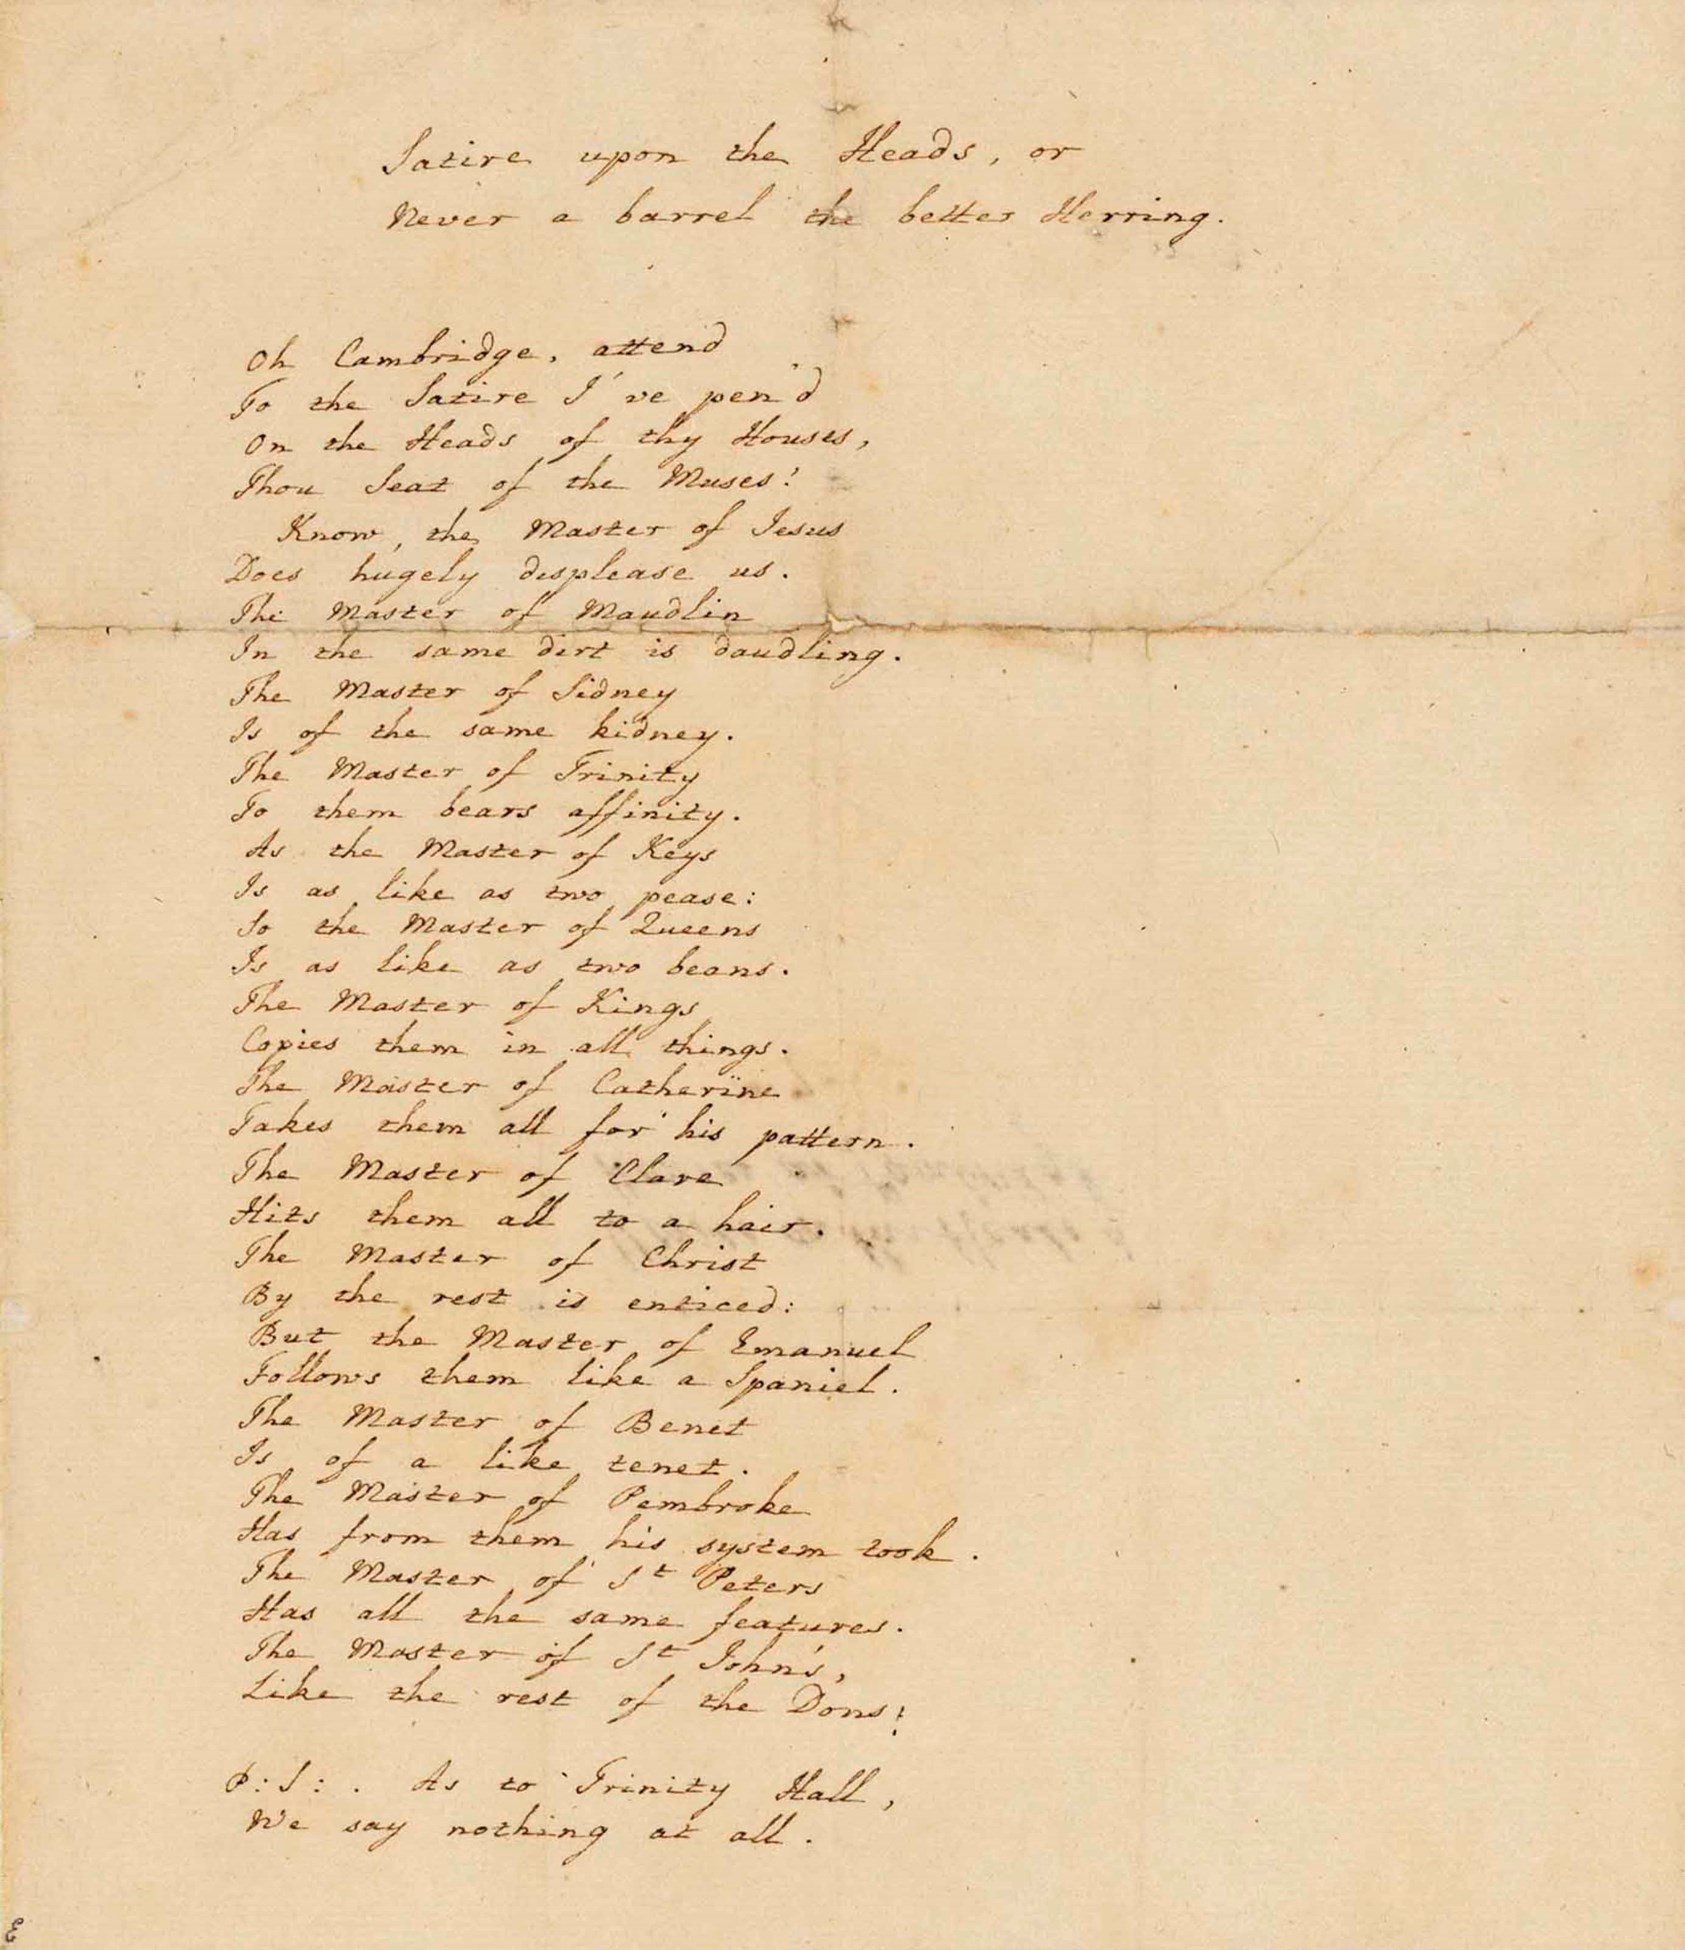 Satire upon the Heads, or
Never a barrel the better Herring.
Oh Cambridge, attend
To the Satire I've pen'd
On the Heads of thy Houses,
Thou Seat of the Muses!
Know, the Master of Jesus
Does hugely displease us.
The Master of Maudlin
In the same dirt is daudling.
The Master of Sidney
Is of the same kidney.
The Master of Trinity
To them bears affinity.
As the Master of Keys
Is as like as two pease:
So the Master of Queens
Is as like as two beans.
The Master of Kings
Copies them in all things.
The Master of Catherine
Takes them all for his pattern.
The Master of Clare
Hits them all to a hair.
The Master of Christ
By the rest is enticed:
But the Master of Emanuel
Follows them like a Spaniel.
The Master of Benet
Is of a like tenet.
The Master of Pembroke
Has from them his system took.
The Master of St Peters
Has all the same features.
The Master of St John's,
Like the rest of the Dons:
P:S:. As to Trinity Hall,
We say nothing at all.